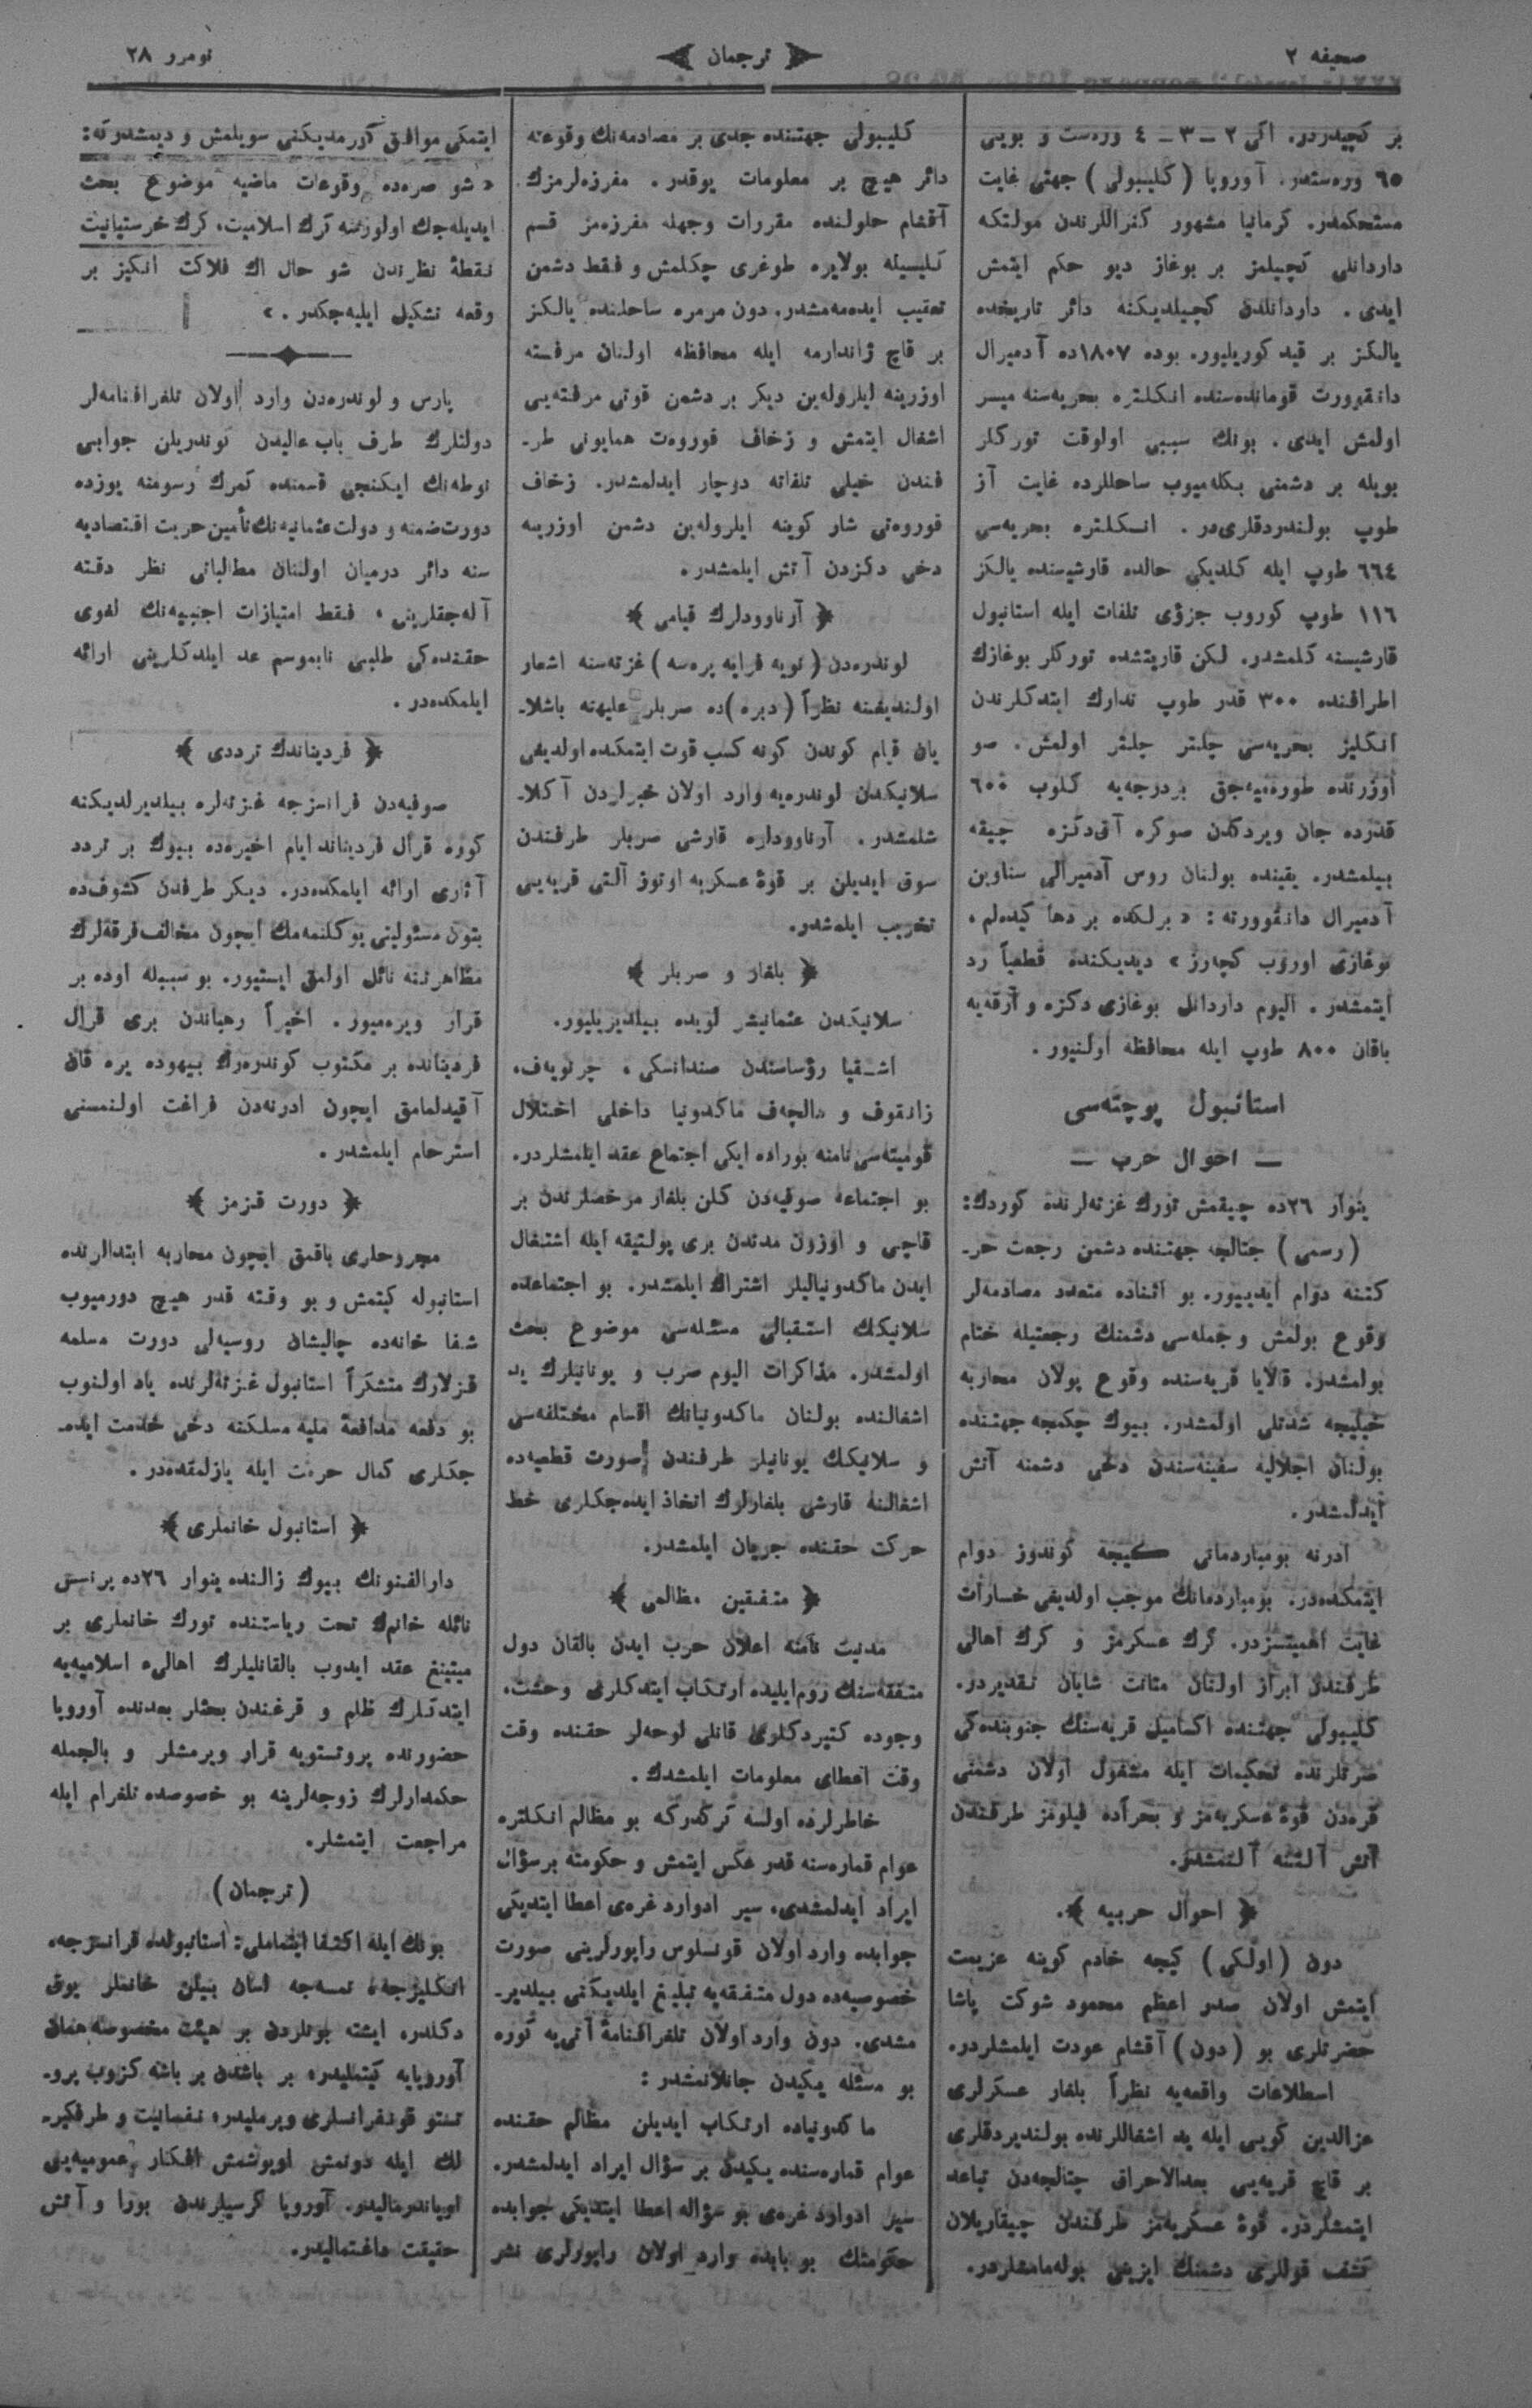 صحیفه ٢
ترجمان
نومرو ٢٨
بر كچیددر. اكی ٢ – ٣ – ٤ ورەست و بویی
٦٥ ورەستدر. آوروپا (كلیبولی) جهتی غایت
مستحكمدر. كرمانیا مشهور كنراللرندن مولتكه
داردانلی كچیلمز بر بوغاز دیو حكم ایتمش
ایدی . داردانلدن كچیلدیكنه دائر تاریخده
یالكز بر قید كوریلیور. بوده ١٨٠٧ده آدمیرال
دانقوورت قوماندەسنده انكلتره بحریەسنه میسر
اولمش ایدی . بونك سببی اولوقت توركلر
بویله بر دشمنی بكلەمیوب ساحللرده غایت آز
طوپ بولندردقلریدر . انكلتره بحریەسی
٦٦٤ طوپ ایله كلدیكی حالده قارشیسنده یالكز
١١٦ طوپ كوروب جزؤی تلفات ایله استانبول
قارشیسنه كلمشدر. لكن قاریتشده توركلر بوغازك
اطرافنده ٣٠٠ قدر طوپ تدارك ایتدكلرندن
انكلیز بحریەسی جلتر جلتر اولمش . صو
اوزرنده طورەمیەجق بردرجەیه كلوب ٦٠٠
قدرده جان ویردكدن صوكره آق‌دكزه چیقه
بیلمشدر. یقینده بولنان روس آدمیرالی سناوین
آدمیرال دانقوورته : « برلكده بر دها كیدەلم ،
بوغازی اوروب كچەرز » دیدیكنده قطعیاً رد
ایتمشدر . الیوم داردانل بوغازی دكزه و آرقەیه
باقان ٨٠٠ طوپ ایله محافظه اولنیور .
استانبول پوچتەسی
— احوال حرب —
ینوار ٢٦ده چیقمش تورك غزتەلرنده كوردك:
(رسمی) چتالجه جهتنده دشمن رجعت حر-
كتنه دوام ایدییور. بو اثناده متعدد مصادمەلر
وقوع بولمش و جملەسی دشمنك رجعتیله ختام
بولمشدر. قالایا قریەسنده وقوع بولان محاربه
خیلیجه شدتلی اولمشدر. بیوك چكمجه جهتنده
بولنان اجلالیه سفینەسندن دخی دشمنه آتش
ایدلمشدر.
ادرنه بومباردمانی كیجه كوندوز دوام
ایتمكدەدر. بومباردمانك موجب اولدیغی خسارات
غایت اهمیتسزدر. كرك عسكرمز و كرك اهالی
طرفندن ابراز اولنان متانت شایان تقدیردر.
كلیبولی جهتنده اكسامیل قریەسنك جنوبندەكی
صرتلرنده تحكیمات ایله مشغول اولان دشمنی
قرەدن قوۀ عسكریەمز و بحراًده فیلومز طرفندن
آتش آلتنه آلنمشدر.
احوال حربیه
دون (اولكی) كیجه خادم كوینه عزیمت
ایتمش اولان صدر اعظم محمود شوكت پاشا
حضرتلری بو (دون) آقشام عودت ایلمشلردر.
اسطلاعات واقعەیه نظراً بلغار عسكرلری
عزالدین كویی ایله ید اشغاللرنده بولندیردقلری
بر قاچ قریەیی بعدالاحراق چتالجەدن تباعد
ایتمشلردر. قوۀ عسكریەمز طرفندن چیقاریلان
كشف قوللری دشمنك ایزینی بولەمامشلردر.
كلیبولی جهتنده جدی بر مصادمەنك وقوعنه
دائر هیچ بر معلومات یوقدر. مفرزەلرمزك
آقشام حلولنده مقررات وجهله مفرزەمز قسم
كلیسیله بولایره طوغری چكلمش و فقط دشمن
تعقیب ایدەمەمشدر. دون مرمره ساحلنده یالكز
بر قاچ ژاندارمه ایله محافظه اولنان مرفته
اوزرینه ایلرولەین دیكر بر دشمن قوتی مرفتەیی
اشغال ایتمش و زخاف قوروەت همایونی طر-
فندن خیلی تلفاته دوچار ایدلمشدر. زخاف
قوروەتی شار كوینه ایلرولەین دشمن اوزرینه
دخی دكزدن آتش ایلمشدر.
آرناوودلرك قیامی
لوندرەدن (نویه فرایه پرەسه) غزتەسنه اشعار
اولندیغنه نظراً (دبره)ده صربلر علیهنه باشلا-
یان قیام كوندن كونه كسب قوت ایتمكده اولدیغی
سلانیكدن لوندرەیه وارد اولان خبرلردن آكلا-
شلمشدر. آرناوودلره قارشی صربلر طرفندن
سوق ایدیلن بر قوۀ عسكریه اوتوز آلتی قریەیی
تخریب ایلمشدر.
بلغار و صربلر
سلانیكدن عثمانیشر لویده بیلدیریلیور.
اشقیا رؤساسندن صندانسكی ، چرنویەف،
زانقوف و مالچەف ماكدونیا داخلی اختلال
قومیتەسی نامنه بوراده ایكی اجتماع عقد ایلمشلردر.
بو اجتماعه صوفیەدن كلن بلغار مرخصلرندن بر
قاچی و اوزون مدتدن بری پولتیقه ایله اشتغال
ایدن ماكدونیالیلر اشتراك ایلمشدر. بو اجتماعده
سلانیكك استقبالی مسئلەسی موضوع بحث
اولمشدر. مذاكرات الیوم صرب و یونانیلرك ید
اشغالنده بولنان ماكدونیانك اقسام مختلفەسی
و سلانیكك یونانیلر طرفندن صورت قطعیەده
اشغالنه قارشی بلغارلرك اتخاذ ایدەجكلری خط
حركت حقنده جریان ایلمشدر.
متفقین مظالمی
مدنیت نامنه اعلان حرب ایدن بالقان دول
متفقەسنك روم‌ایلیده ارتكاب ایتدكلری وحشت،
وجوده كتیردكلری قانلی لوحەلر حقنده وقت
وقت اعطای معلومات ایلمشدك.
خاطرلرده اولسه كركدركه بو مظالم انكلتره
عوام قمارەسنه قدر عكس ایتمش و حكومته برسؤال
ایراد ایدلمشدی. سیر ادوارد غرەی اعطا ایتدیكی
جوابده وارد اولان قونسلوس راپورلرینی صورت
خصوصیەده دول متفقەیه تبلیغ ایلدیكنی بیلدیر-
مشدی. دون وارد اولان تلغرافنامۀ آتی‌یه كوره
بو مسئله یكیدن جانلانمشدر :
ماكدونیاده ارتكاب ایدیلن مظالم حقنده
عوام قمارەسنده یكیدن بر سؤال ایراد ایدلمشدر.
سیر ادوارد غرەی بو سؤاله اعطا ایتدیكی جوابده
حكومتك بو بابده وارد اولان راپورلری نشر
ایتمكی موافق كورمدیكنی سویلمش و دیمشدركه:
« شو صرەده وقوعات ماضیه موضوع بحث
ایدیلەجك اولورسه كرك اسلامیت، كرك خرستیانیت
نقطۀ نظرندن شو حال اك فلاكت انكیز بر
وقعه تشكیل ایلیەجكدر . »
پارس و لوندرەدن وارد اولان تلغرافنامەلر
دولتلرك طرف باب عالیدن كوندریلن جوابی
نوطەنك ایكنجی قسمنده كمرك رسومنه یوزده
دورت ضمنه و دولت عثمانیەنك تأمین حریت اقتصادیه
سنه دائر درمیان اولنان مطالباتی نظر دقته
آلەجقلرینی ، فقط امتیازات اجنبیەنك لغوی
حقندەكی طلبی نابموسم عد ایلدكلرینی ارائه
ایلمكدەدر .
فردیناندك ترددی
صوفیەدن فرانسزجه غزتەلره بیلدیرلدیكنه
كوره قرال فردیناند ایام اخیرەده بیوك بر تردد
آثاری ارائه ایلمكدەدر. دیكر طرفدن كشوف‌ده
بتون مسئولیتی یوكلنمەمك ایچون مخالف فرقەلرك
مظاهرتنه نائل اولمق ایستیور. بو سببله اوده بر
قرار ویرەمیور . اخیراً رهباندن بری قرال
فردیناندە بر مكتوب كوندرەرك بیهوده یره قان
آقیدلمامق ایچون ادرنەدن فراغت اولنمسنی
استرحام ایلمشدر .
دورت قزمز
مجروحلری باقمق ایچون محاربه ابتدالرنده
استانبوله كیتمش و بو وقته قدر هیچ دورمیوب
شفا خانەده چالیشان روسیەلی دورت مسلمه
قزلارك متشكراً استانبول غزتەلرنده یاد اولنوب
بو دفعه مدافعۀ ملیه مسلكنه دخی خدمت ایدە-
جكلری كمال حرمت ایله یازلمقدەدر .
استانبول خانملری
دارالفنونك بیوك زالنده ینوار ٢٦ده پرنسس
نائله خانم‌ك تحت ریاستنده تورك خانملری بر
میتینغ عقد ایدوب بالقانلیلرك اهالیء اسلامیەیه
ایتدكلرك ظلم و قرغندن بحثلر بعدنده آوروپا
حضورنده پروتستویه قرار ویرمشلر و بالجمله
حكمدارلرك زوجەلرینه بو خصوصده تلغرام ایله
مراجعت ایتمشلر.
(ترجمان)
بونك ایله اكتفا ایتماملی: استانبولده فرانسزجه،
انكلیزجه، نمسەجه لسان بیلن خانملر یوق
دكلدر، ایشته بونلردن بر هیئت مخصوصه همان
آوروپایه كیتملیدر، بر باشدن بر باشه كزوب پرو-
تستو قونفرانسلری ویرملیدر، نفسانیت و طرفكیر-
لك ایله دونمش اویوشمش افكار عمومیەیی
اویاندرمالیدر. آوروپا كرسیلرندن بورا و آتش
حقیقت داغتمالیدر.